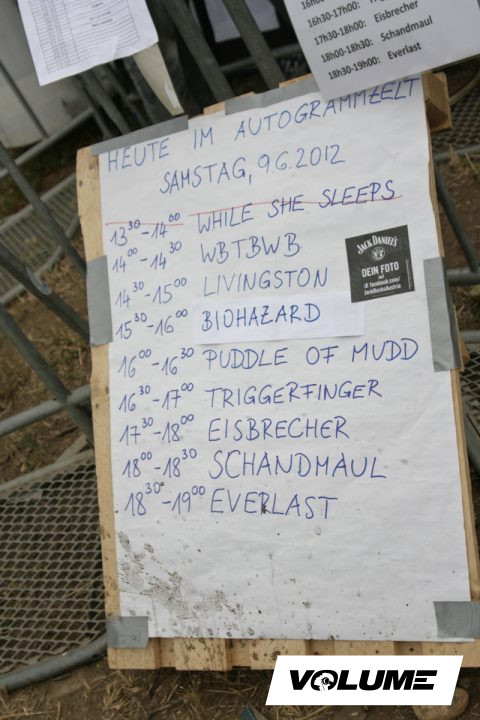 16h30-17h00:
17h30-18h00: Eisbrecher
18h00-18h30: Schandmaul
18h30-19h00: Everlast
HEUTE IM AUTOGRAMMZELT
SAMSTAG, 9.6.2012
13³⁰-14⁰⁰ WHILE SHE SLEEPS
14⁰⁰-14³⁰ WBTBWB
14³⁰-15⁰⁰ LIVINGSTON
15³⁰-16⁰⁰ BIOHAZARD
16⁰⁰-16³⁰ PUDDLE OF MUDD
16³⁰-17⁰⁰ TRIGGERFINGER
17³⁰-18⁰⁰ EISBRECHER
18⁰⁰-18³⁰ SCHANDMAUL
18³⁰-19⁰⁰ EVERLAST
JACK DANIEL'S
DEIN FOTO
auf
facebook.com/
JackRocksAustria
VOLUME